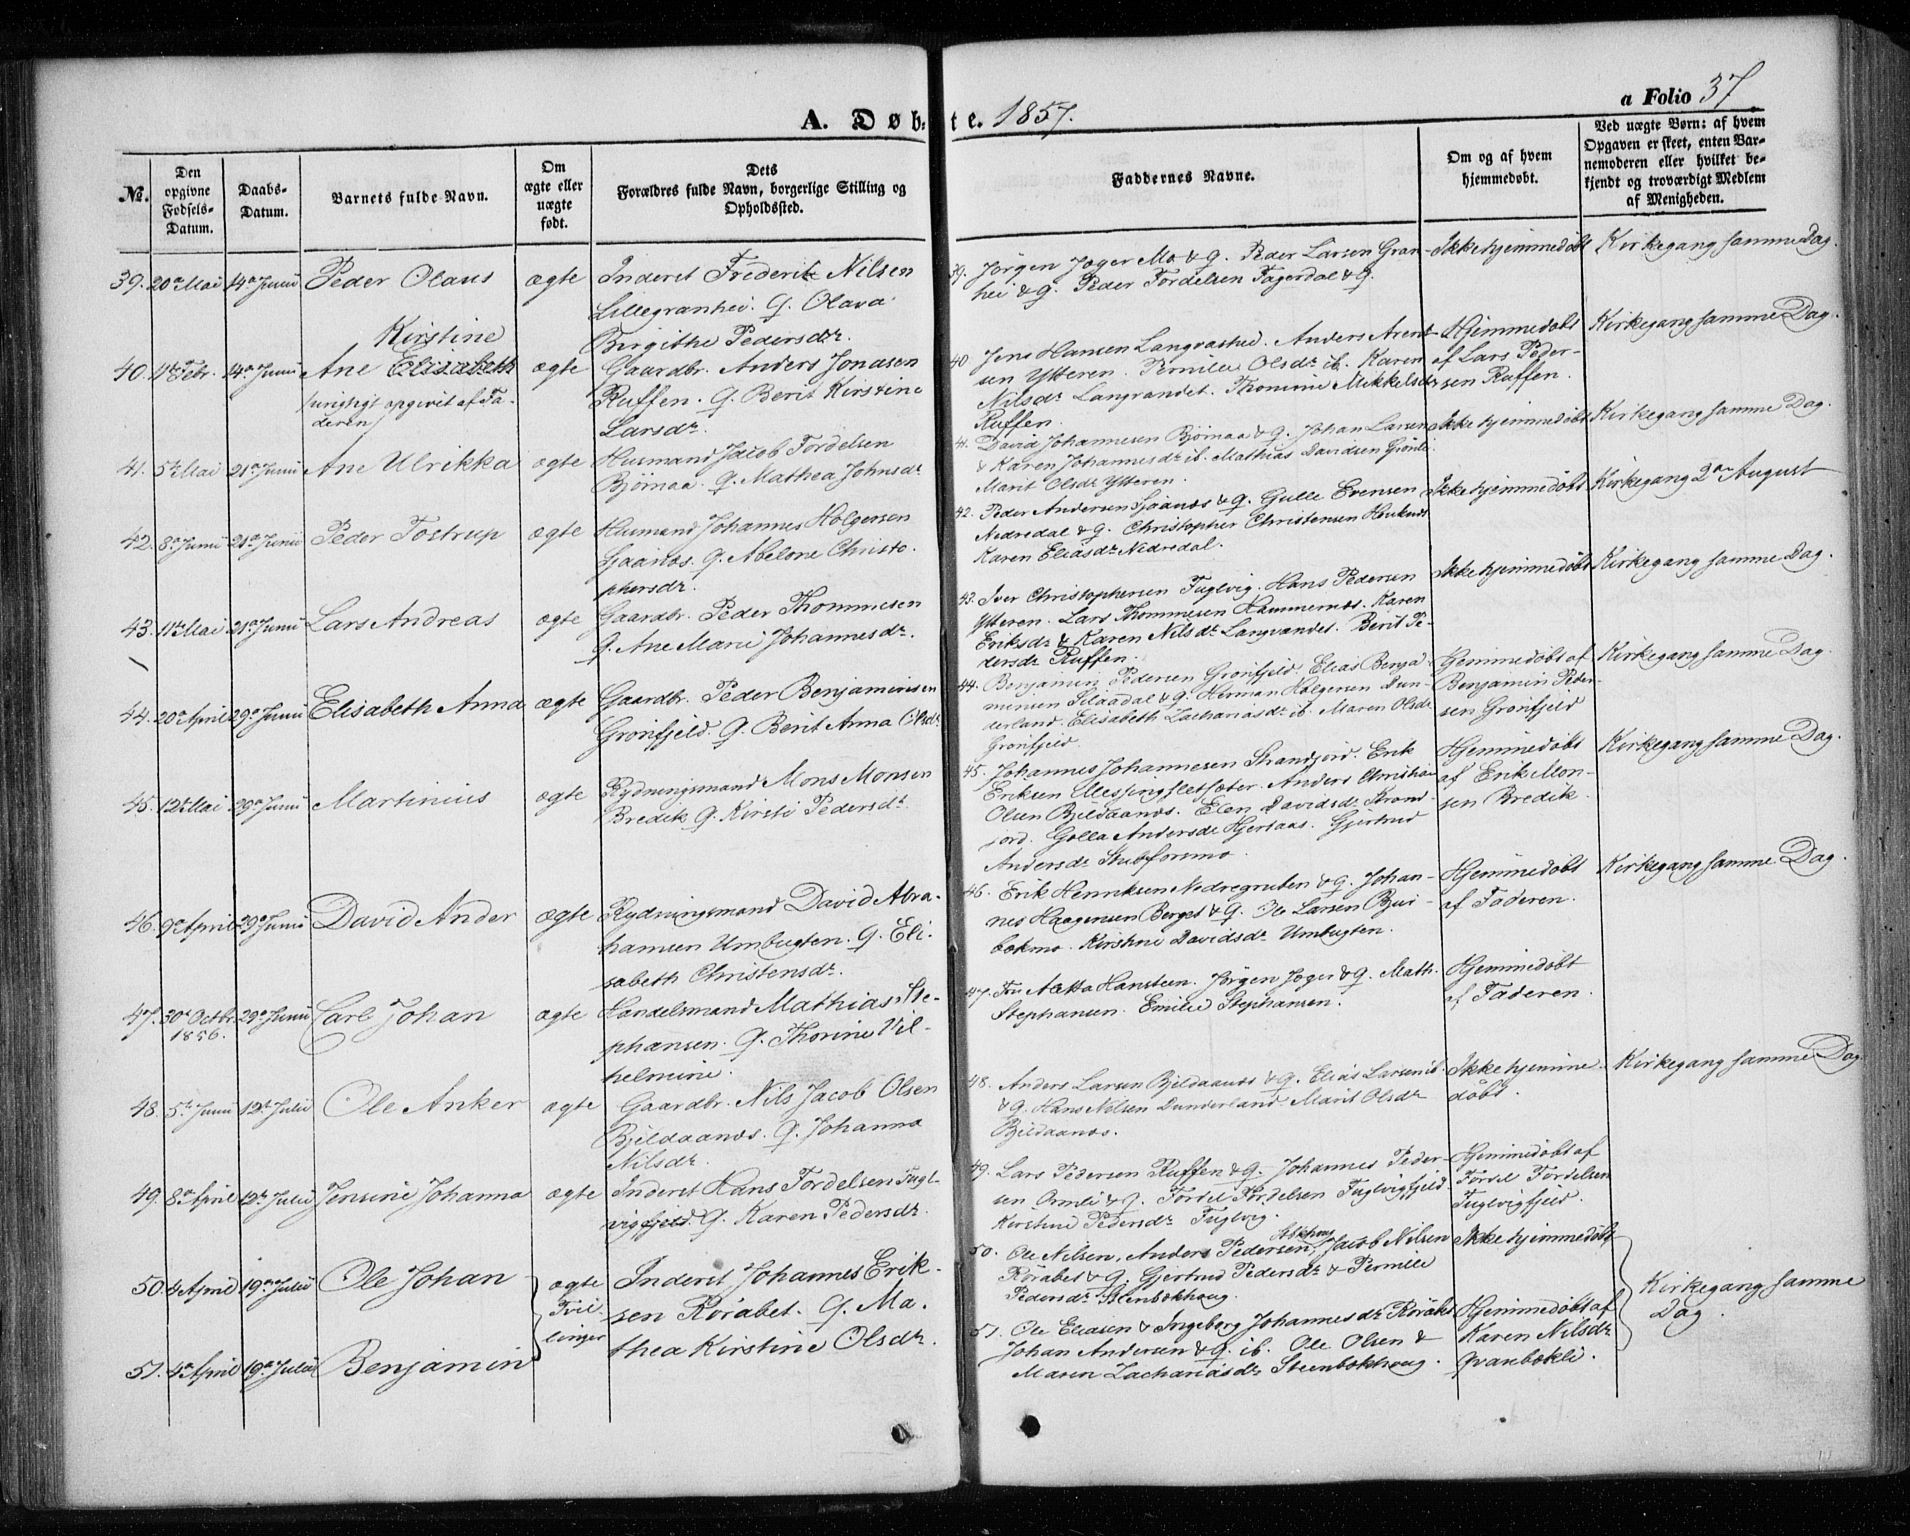 A. Døbte. 1857.
a Folio 37
No.
Den opgivne Fødsels-Datum.
Daabs-Datum.
Barnets fulde Navn.
Om ægte eller uægte født.
Dets Forældres fulde Navn, borgerlige Stilling og Opholdssted.
Faddernes Navne.
Om og af hvem hjemmedøbt.
Ved uægte Børn: af hvem
Opgaven er skeet, enten Bar-
nemoderen eller hvilket be-
kjendt og troværdigt Medlem
af Menigheden.
39. 20de Mai 14de Junii Peder Olaus ægte Inderst Frederik Nilsen
Lillegranhei. Q. Olava
Birgithe Pedersdr.
39. Jörgen Jæger Mo & Q. Peder Larsen Gran-
hei & Q. Peder Fordelsen Fagerdal & Q.
Ikke hjemmedøbt Kirkegang samme Dag.
Kirstine
40. 11te Febr. 14de Junii Ane Elisabeth ægte Gaardbr. Anders Jonasen
(urigtigt opgivet af Fa-
deren)
Ruffen. Q. Berit Kirstine
Larsdr.
40 Jens Hansen Langvashei. Anders Arent-
sen Ytteren. Pernille Olsdr ib. Karen
Nilsdr Langvandet. Thomine Mikkelsdr
Ruffen.
Hjemmedøbt
af Lars Peder-
sen Ruffen.
Kirkegang samme Dag.
41. 5te Mai 21de Junii Ane Ulrikka ægte Husmand Jacob Fordelsen
Bjömaa. Q. Mathea Johnsdr
41. David Johannesen Björnaa & Q. Johan Larsen
& Karen Johannesdr ib. Mathias Davidsen Grönli.
Marit Olsdr Ytteren.
Ikke hjemmedøbt Kirkegang samme Dag.
42. 8de Junii 21de Junii Peder Tostrup ægte Husmand Johannes Holgersen
Sjaanæs. Q. Abelone Christo-
phersdr.
42. Peder Andersen Sjaanæs & Q. Gulle Evensen
Nedredal & Q. Christopher Christensen
Karen Eliasdr Nedredal.
Ikke hjemmedøbt Kirkegang 2den August
43. 11te Mai 21de Junii Lars Andreas ægte Gaardbr. Peder Thommesen
Q. Ane Marie Johannesdr.
43. Iver Christophersen Fuglvig. Hans Pedersen
Ytteren. Lars Thommesen Hammernæs. Karen
Eriksdr & Karen Nilsdr Langvandet. Berit Pe-
dersdr Ruffen.
Ikke hjemmedøbt Kirkegang samme Dag.
44. 20de April 29de Junii Elisabeth Anna ægte Gaardbr. Peder Benjaminsen
Grönfjeld. Q. Berit Anna Olsdr.
44. Benjamin Pedersen Grönfjeld. Elias Benja-
minsen Stilaadal & Q. Herman Holgersen Dun-
derland. Elisabeth Zachariasdr ib. Maren Olsdr
Grönfjeld.
Hjemmedøbt af
Benjamin Peder-
sen Grönfjeld
Kirkegang samme Dag.
45. 12te Mai 29de Junii Martinius ægte Rydningsmand Mons Monsen
Bredik Q. Kirsti Pedersdr.
45. Johannes Johannesen Strandjord. Erik
Eriksen Messingsletsæter. Anders Christian
Olsen Bjeldaanæs. Elen Davidsdr Strand-
jord. Golla Andersdr Hjertaas. Gjertrud
Andersdr Stubforsmo.
Hjemmedøbt
af Erik Mon-
sen Bredik.
Kirkegang samme Dag.
46. 9de April 29de Junii David Ander ægte Rydningsmand David Abra-
hamsen Umbugten. Q. Eli-
sabeth Christensdr.
46. Erik Henriksen Nedregruben & Q. Johan-
nes Haagensen Berget & Q. Ole Larsen Bjur-
bækmo. Kirstine Davidsdr Umbugten.
Hjemmedøbt
af Faderen.
Kirkegang samme Dag.
47. 30te Octbr. 1856. 29de Junii Carl Johan ægte Handelsmand Mathias Ste-
phansen. Q. Thorine Vil-
helmine.
47. Fru Aletta Hansteen. Jörgen Jæger & Q. Math.
Stephansen. Emilie Stephansen.
Hjemmedøbt
af Faderen.
48. 5te Junii 12te Julii Ole Anker ægte Gaardbr. Nils Jacob Olsen
Bjeldaanæs. Q. Johanna
Nilsdr.
48. Anders Larsen Bjeldaanæs & Q. Elias Larsen ib.
& Q. Hans Nilsen Dunderland. Marit Olsdr
Bjeldaanæs.
Ikke hjemme-
døbt.
Kirkegang samme Dag.
49. 8de April 12te Julii Jensine Johanna ægte Inderst Hans Fordelsen Fugl-
vigfjeld. Q. Karen Pedersdr.
49. Lars Pedersen Ruffen & Q. Johannes Peder-
sen Ormli & Q. Fordel Fordelsen Fuglvigfjeld
Kirstine Pedersdr Fuglvig.
Hjemmedøbt af
Fordel Fordelsen
Fuglvigfjeld.
50. 4 April 19de Julii Ole Johan ægte Tvil-
linger
Inderst Johannes Erik-
sen Röraabet. Q. Ma-
thea Kirstine Olsdr.
50. Ole Nilsen, Anders Pedersen, Jacob Nilsen
Röraabet & Q. Gjertrud Pedersdr & Pernille
Pedersdr Stenbækhoug.
Ikke hjemmedøbt
Kirkegang samme
Dag.
51. 4de April 19de Julii Benjamin
51. Ole Eliasen & Ingeborg Johannesdr Röraabet
Johan Andersen & Q. ib. Ole Olsen &
Maren Zachariasdr Steenbækhoug.
Hjemmedøbt af
Karen Nilsdr
Qvanbækli.